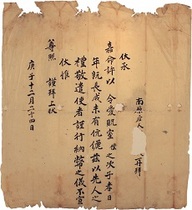 南原后人 再拜
伏承
嘉命許以令愛貺室 之次子孝日
年旣長成未有伉儷玆以先人之
禮敬遣使者謹行納幣之儀不宣
伏惟
尊照 謹拜上狀
庚子十二月二十四日